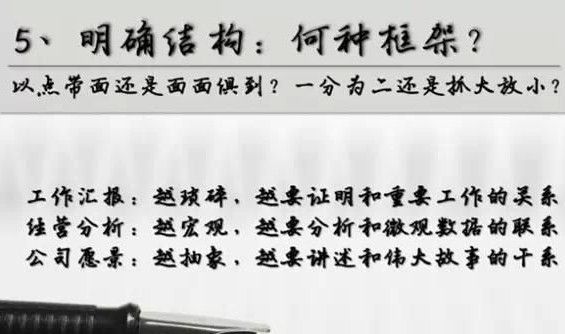 5、明确结构：何种框架？
以点带面还是面面俱到？一分为二还是抓大放小？
工作汇报：越琐碎，越要证明和重要工作的关系
经营分析：越宏观，越要分析和微观数据的联系
公司愿景：越抽象，越要讲述和伟大故事的干系